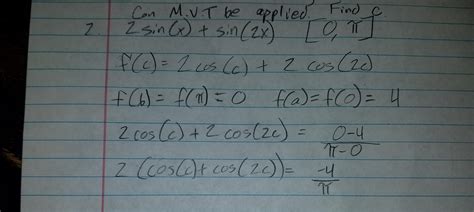 Can M.V.T be applied? Find c
2. 2 sin(x) + sin(2x) [0, π]
f'(c) = 2 cos(c) + 2 cos(2c)
f(b) = f(π) = 0 f(a) = f(0) = 4
2 cos(c) + 2 cos(2c) = 0-4/π-0
2 (cos(c) + cos(2c)) = -4/π